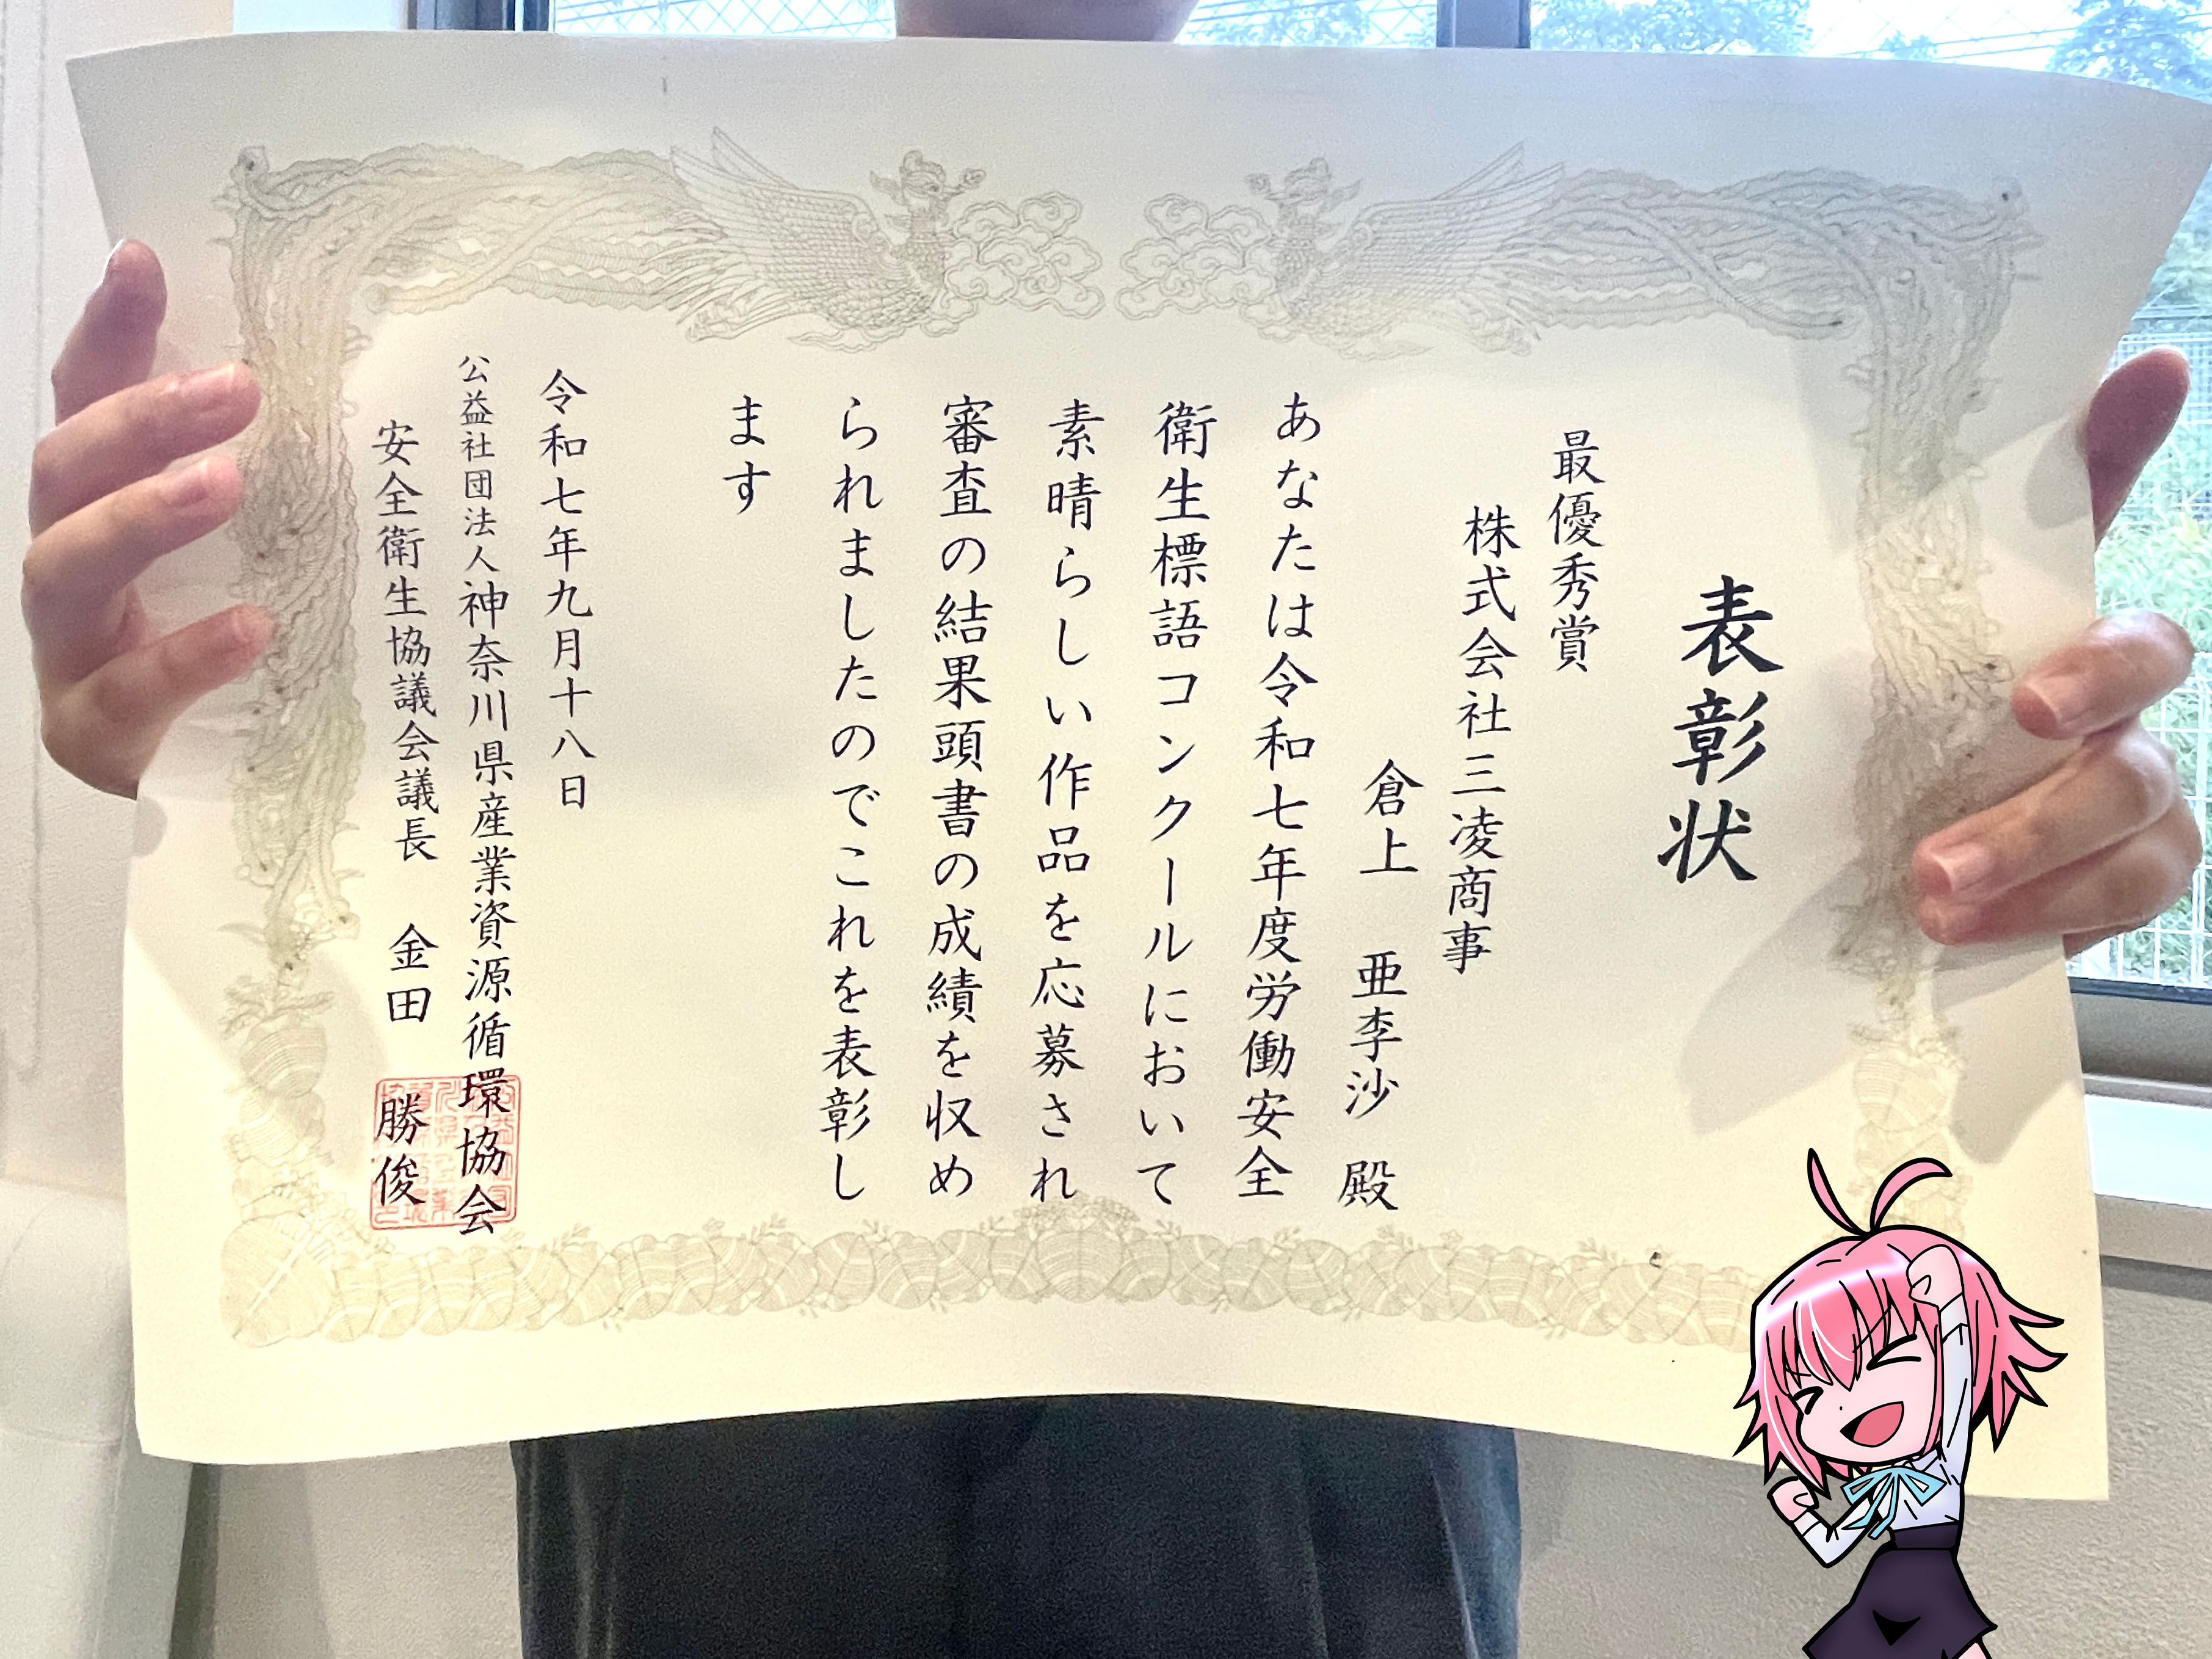 表彰状
最優秀賞
株式会社三凌商事
倉上 亜李沙 殿
あなたは令和七年度労働安全
衛生標語コンクールにおいて
素晴らしい作品を応募され
審査の結果頭書の成績を収め
られましたのでこれを表彰し
ます
令和七年九月十八日
公益社団法人神奈川県産業資源循環協会
安全衛生協議会議長 金田 勝俊